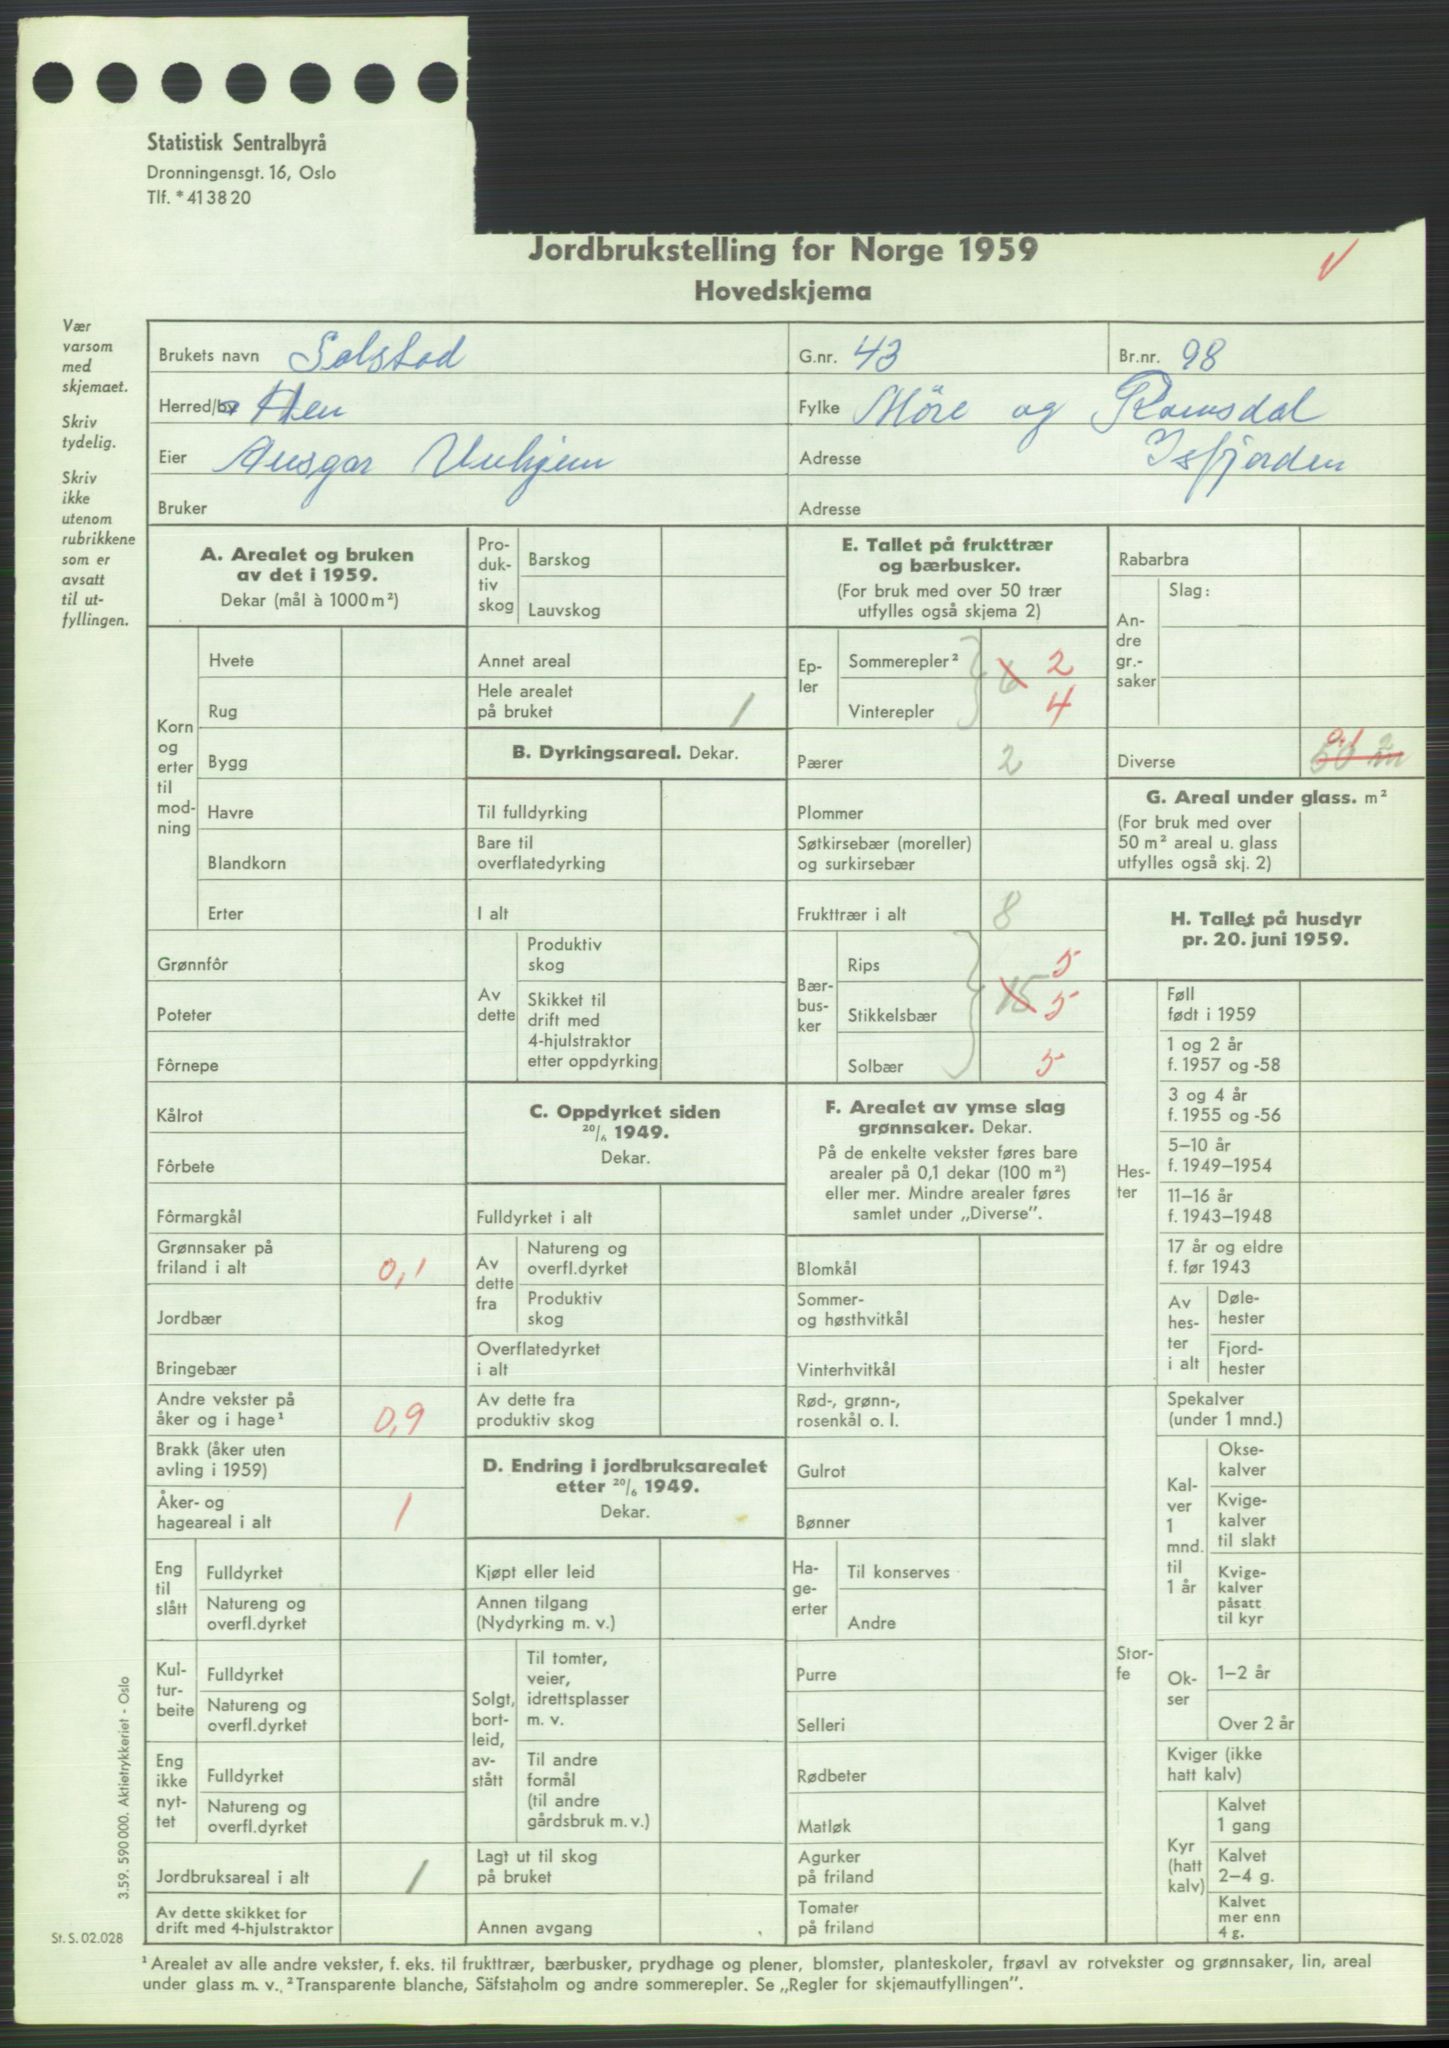 Statistisk Sentralbyrå
Dronningensgt. 16, Oslo
Tlf. * 41 38 20
Jordbrukstelling for Norge 1959
Hovedskjema
Vær
varsom
med
skjemaet.
Skriv
tydelig.
Skriv
ikke
utenom
rubrikkene
som er
avsatt
til ut-
fyllingen.
Brukets navn Solstad G.nr. 43 Br.nr. 98
Herred/by Hen Fylke Möre og Romsdal
Eier Ansgar Unhjem Adresse Isfjorden
Bruker Adresse
A. Arealet og bruken
av det i 1959.
Dekar (mål à 1000 m²)
Korn
og
erter
til
mod-
ning
Hvete
Rug
Bygg
Havre
Blandkorn
Erter
Grønnfôr
Poteter
Fôrnepe
Kålrot
Fôrbete
Fôrmargkål
Grønnsaker på
friland i alt 0,1
Jordbær
Bringebær
Andre vekster på
åker og i hage¹ 0,9
Brakk (åker uten
avling i 1959)
Åker- og
hageareal i alt 1
Eng
til
slått
Fulldyrket
Natureng og
overfl.dyrket
Kul-
tur-
beite
Fulldyrket
Natureng og
overfl.dyrket
Eng
ikke
nyt-
tet
Fulldyrket
Natureng og
overfl.dyrket
Jordbruksareal i alt 1
Av dette skikket for
drift med 4-hjulstraktor
Pro-
duk-
tiv
skog
Barskog
Lauvskog
Annet areal
Hele arealet
på bruket 1
B. Dyrkingsareal. Dekar.
Til fulldyrking
Bare til
overflatedyrking
I alt
Av
dette
Produktiv
skog
Skikket til
drift med
4-hjulstraktor
etter oppdyrking
C. Oppdyrket siden
20/6 1949.
Dekar.
Fulldyrket i alt
Av
dette
fra
Natureng og
overfl.dyrket
Produktiv
skog
Overflatedyrket
i alt
Av dette fra
produktiv skog
D. Endring i jordbruksarealet
etter 20/6 1949.
Dekar.
Kjøpt eller leid
Annen tilgang
(Nydyrking m. v.)
Solgt,
bort-
leid,
av-
stått
Til tomter,
veier,
idrettsplasser
m. v.
Til andre
formål
(til andre
gårdsbruk m. v.)
Lagt ut til skog
på bruket
Annen avgang
E. Tallet på frukttrær
og bærbusker.
(For bruk med over 50 trær
utfylles også skjema 2)
Ep-
ler
Sommerepler² 6 2
Vinterepler 4
Pærer 2
Plommer
Søtkirsebær (moreller)
og surkirsebær
Frukttrær i alt 8
Bær-
bus-
ker
Rips 5
Stikkelsbær 15 5
Solbær 5
F. Arealet av ymse slag
grønnsaker. Dekar.
På de enkelte vekster føres bare
arealer på 0,1 dekar (100 m²)
eller mer. Mindre arealer føres
samlet under „Diverse”.
Blomkål
Sommer-
og høsthvitkål
Vinterhvitkål
Rød-, grønn-,
rosenkål o. l.
Gulrot
Bønner
Ha-
ge-
erter
Til konserves
Andre
Purre
Selleri
Rødbeter
Matløk
Agurker
på friland
Tomater
på friland
Rabarbra
An-
dre
gr.-
saker
Slag:
Diverse 0,1 50 m²
G. Areal under glass. m²
(For bruk med over
50 m² areal u. glass
utfylles også skj. 2)
H. Tallet på husdyr
pr. 20. juni 1959.
Hes-
ter
Føll
født i 1959
1 og 2 år
f. 1957 og -58
3 og 4 år
f. 1955 og -56
5–10 år
f. 1949–1954
11–16 år
f. 1943–1948
17 år og eldre
f. før 1943
Av
hes-
ter
i alt
Døle-
hester
Fjord-
hester
Stor-
fe
Spekalver
(under 1 mnd.)
Kal-
ver
1
mnd.
til
1 år
Okse-
kalver
Kvige-
kalver
til slakt
Kvige-
kalver
påsatt
til kyr
Ok-
ser
1–2 år
Over 2 år
Kviger (ikke
hatt kalv)
Kyr
(hatt
kalv)
Kalvet
1 gang
Kalvet
2–4 g.
Kalvet
mer enn
4 g.
3.59. 590 000. Aktietrykkeriet - Oslo
St. S. 02.028
¹ Arealet av alle andre vekster, f. eks. til frukttrær, bærbusker, prydhage og plener, blomster, planteskoler, frøavl av rotvekster og grønnsaker, lin, areal
under glass m. v. ² Transparente blanche, Säfstaholm og andre sommerepler. Se „Regler for skjemautfyllingen”.